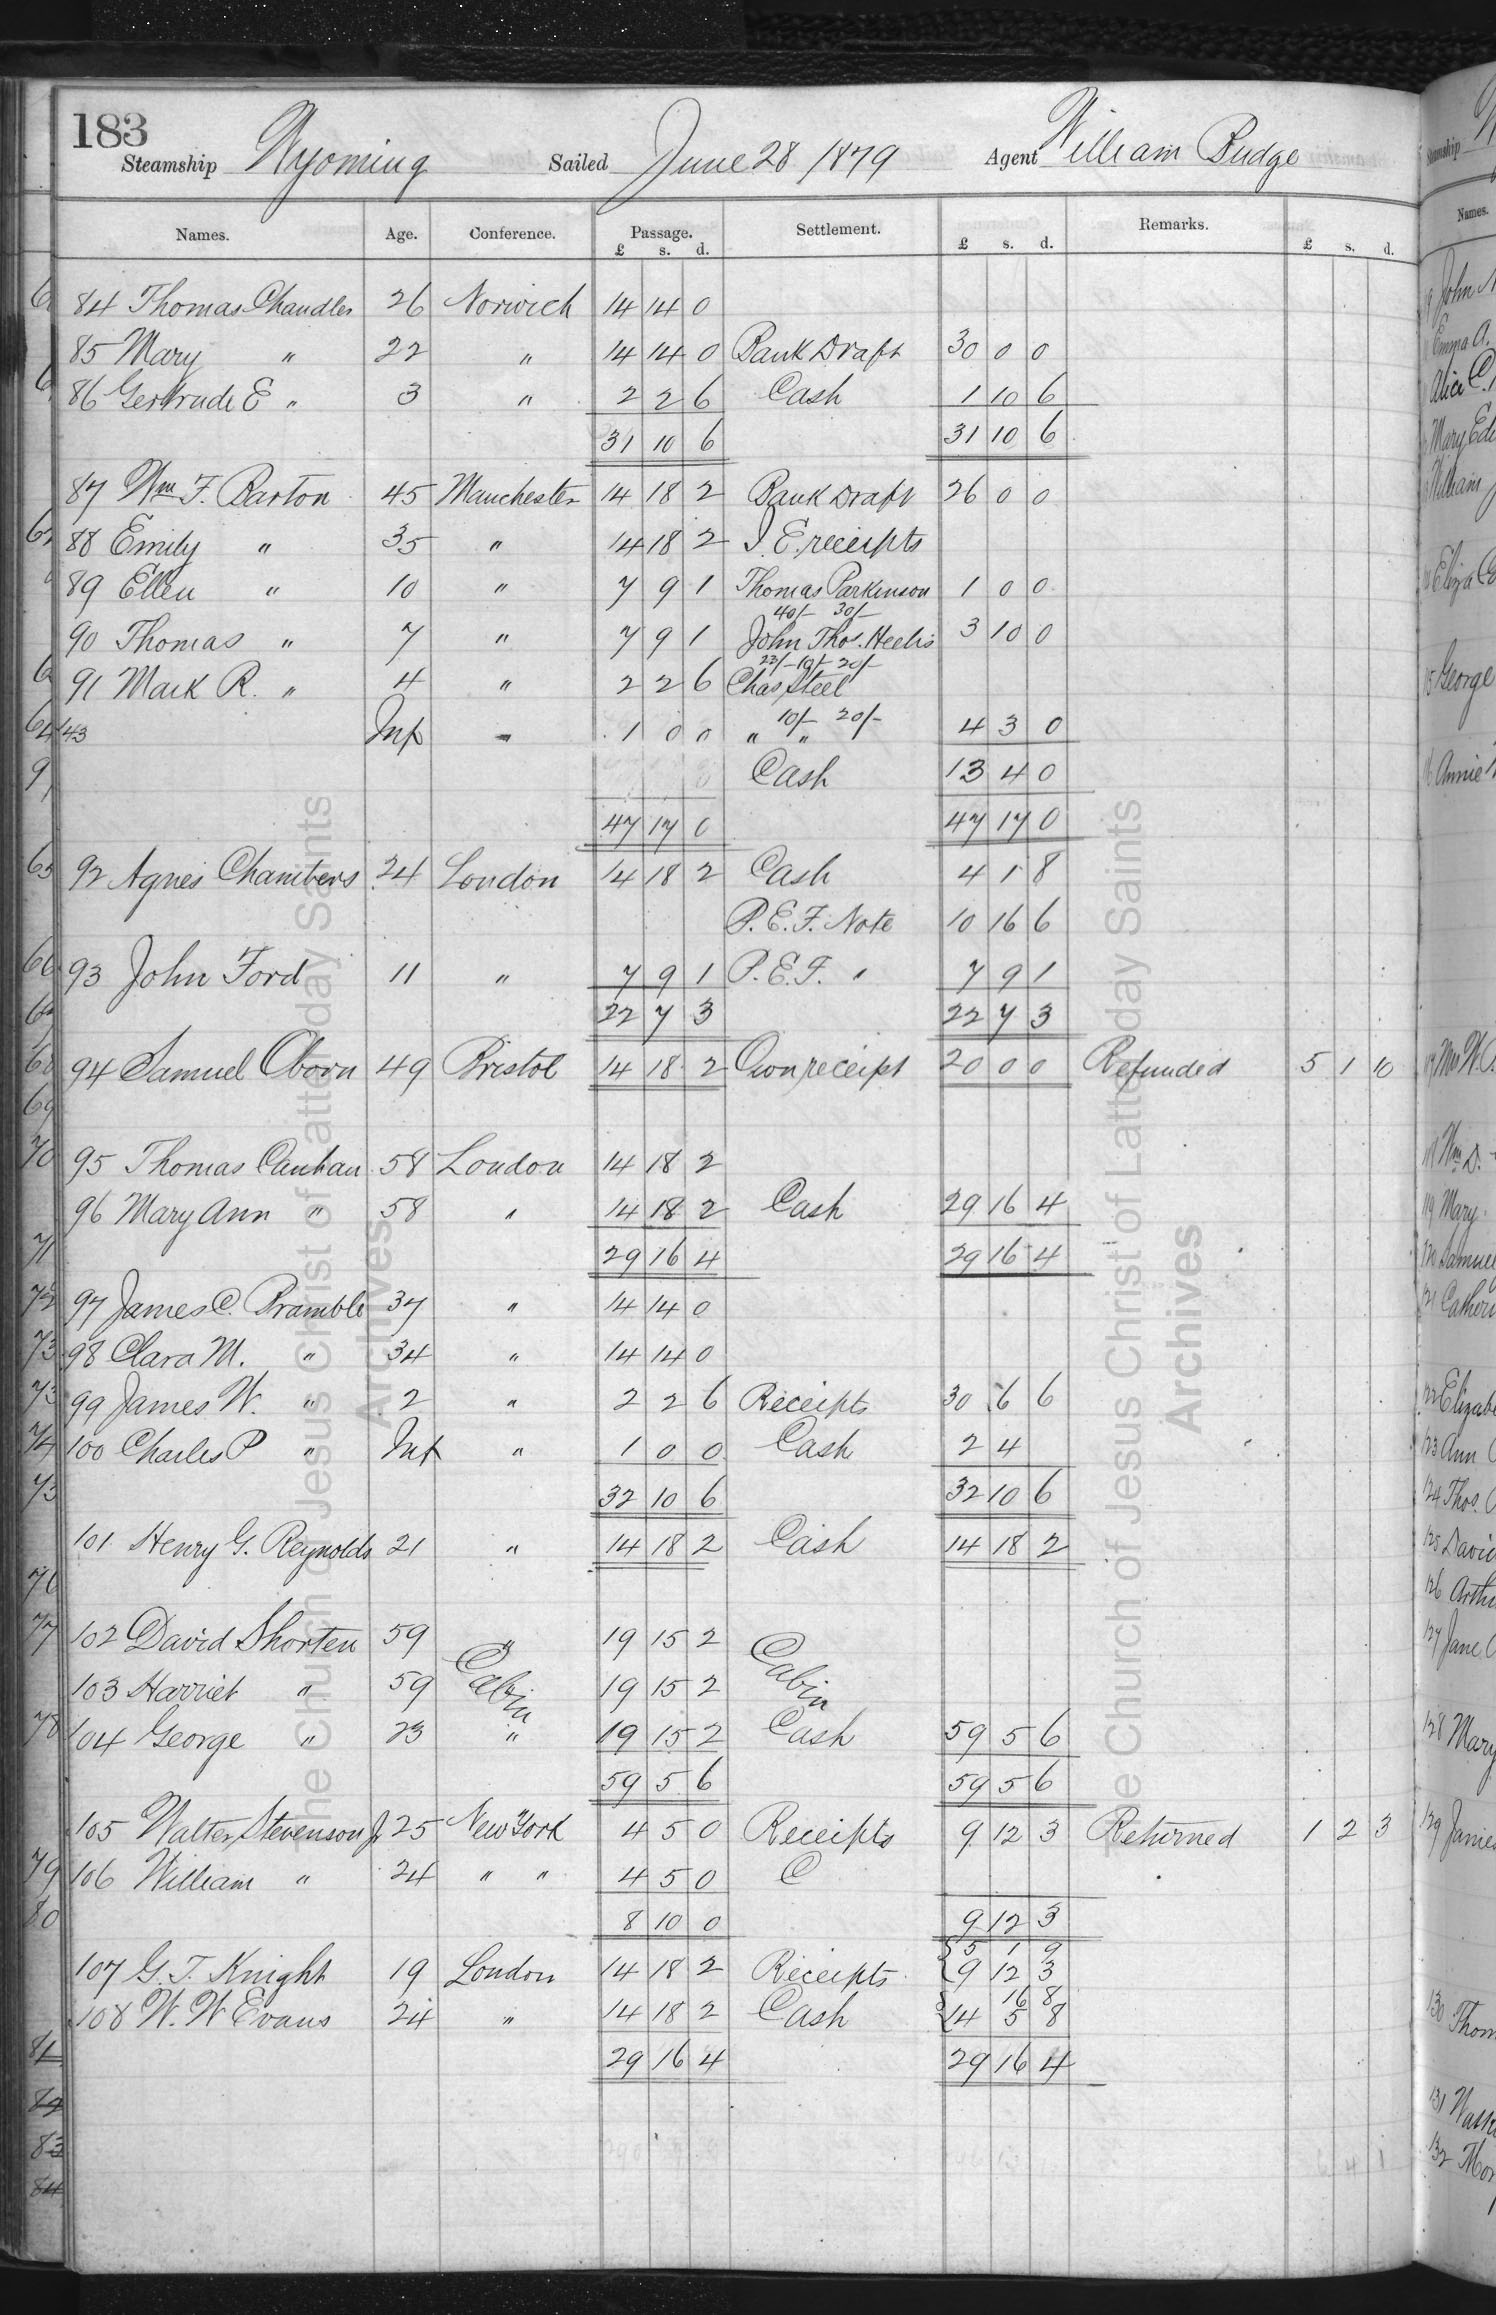 183
Steamship Wyoming Sailed June 28 1879 Agent William Budge
Names. Age. Conference. Passage. Settlement. Remarks.
£ s. d. £ s. d. £ s. d.
84 Thomas Chandler 26 Norwich 14 14 0
85 Mary " 22 " 14 14 0 Bank Draft 30 0 0
86 Gertrude E " 3 " 2 2 6 Cash 1 10 6
31 10 6 31 10 6
87 Wm F. Barton 45 Manchester 14 18 2 Bank Draft 26 0 0
88 Emily " 35 " 14 18 2 I. E. receipts
89 Ellen " 10 " 7 9 1 Thomas Parkinson 1 0 0
40/- 30/-
90 Thomas " 7 " 7 9 1 John Thos. Heelis 3 10 0
23/- 10/- 20/-
91 Mark R. " 4 " 2 2 6 Chas Steel
10/- 20/-
43 Inf " 1 0 0 " " 4 3 0
Cash 13 4 0
47 17 0 47 17 0
92 Agnes Chambers 24 London 14 18 2 Cash 4 1 8
P.E.F. Note 10 16 6
93 John Ford 11 " 7 9 1 P.E.F. " 7 9 1
22 7 3 22 7 3
94 Samuel Oborn 49 Bristol 14 18 2 Own receipt 20 0 0 Refunded 5 1 10
95 Thomas Canhan 58 London 14 18 2
96 Mary Ann " 58 " 14 18 2 Cash 29 16 4
29 16 4 29 16 4
97 James C. Bramble 37 " 14 14 0
98 Clara M. " 34 " 14 14 0
99 James W. " 2 " 2 2 6 Receipts 30 6 6
100 Charles P " Inf " 1 0 0 Cash 2 4
32 10 6 32 10 6
101 Henry G. Reynolds 21 " 14 18 2 Cash 14 18 2
102 David Shorten 59 " 19 15 2
Cabin Cabin
103 Harriet " 59 19 15 2
104 George " 23 " 19 15 2 Cash 59 5 6
59 5 6 59 5 6
105 Walter Stevenson Jr 25 New York 4 5 0 Receipts 9 12 3 Returned 1 2 3
106 William " 24 " " 4 5 0 C
8 10 0 9 12 3
5 1 9
107 G. T. Knight 19 London 14 18 2 Receipts 9 12 3
16 8
108 W. W Evans 24 " 14 18 2 Cash 14 5 8
29 16 4 29 16 4
The Church of Jesus Christ of Latter-day Saints
Archives
The Church of Jesus Christ of Latter-day Saints
Archives
Names.
John
Emma A.
Alice C.
William
Eliza
115 George
116 Annie
118 Wm D.
119 Mary
120 Samuel
123 Ann
124 Thos.
125 David
127 Jane
128 Mary